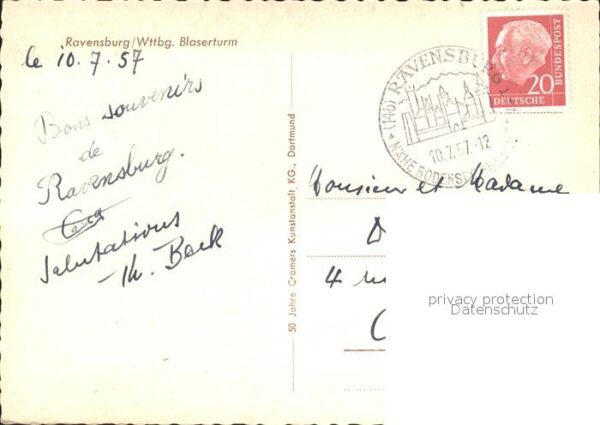 Ravensburg/Wttbg. Blaserturm
le 10.7.57
Bons souvenirs
de
Ravensburg.
Salutations
Th. Beck
50 Jahre Cramers Kunstanstalt KG., Dortmund
(14b) RAVENSBURG
10.7.57.-12
NÄHE BODENSEE
20
DEUTSCHE
BUNDESPOST
Monsieur et Madame
D
4 ru
C
privacy protection
Datenschutz